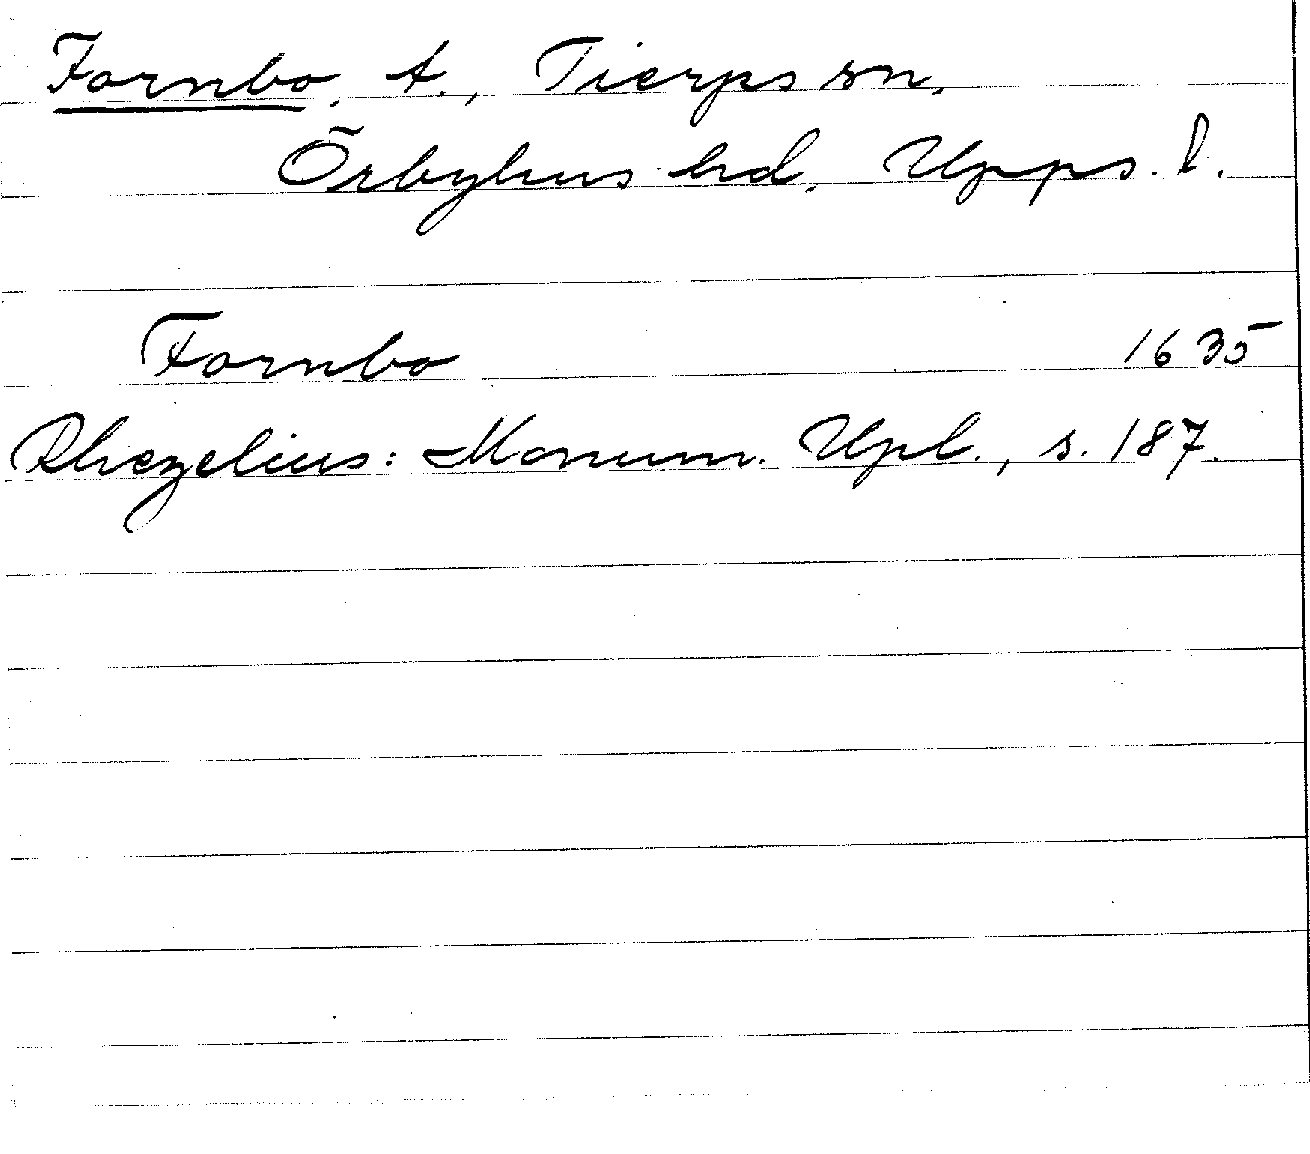 Fornbo, t., Tierps sn,
Örbyhus hd, Upps. l.
Fornbo 1635
Rhezelius: Monum. Upl., s. 187.